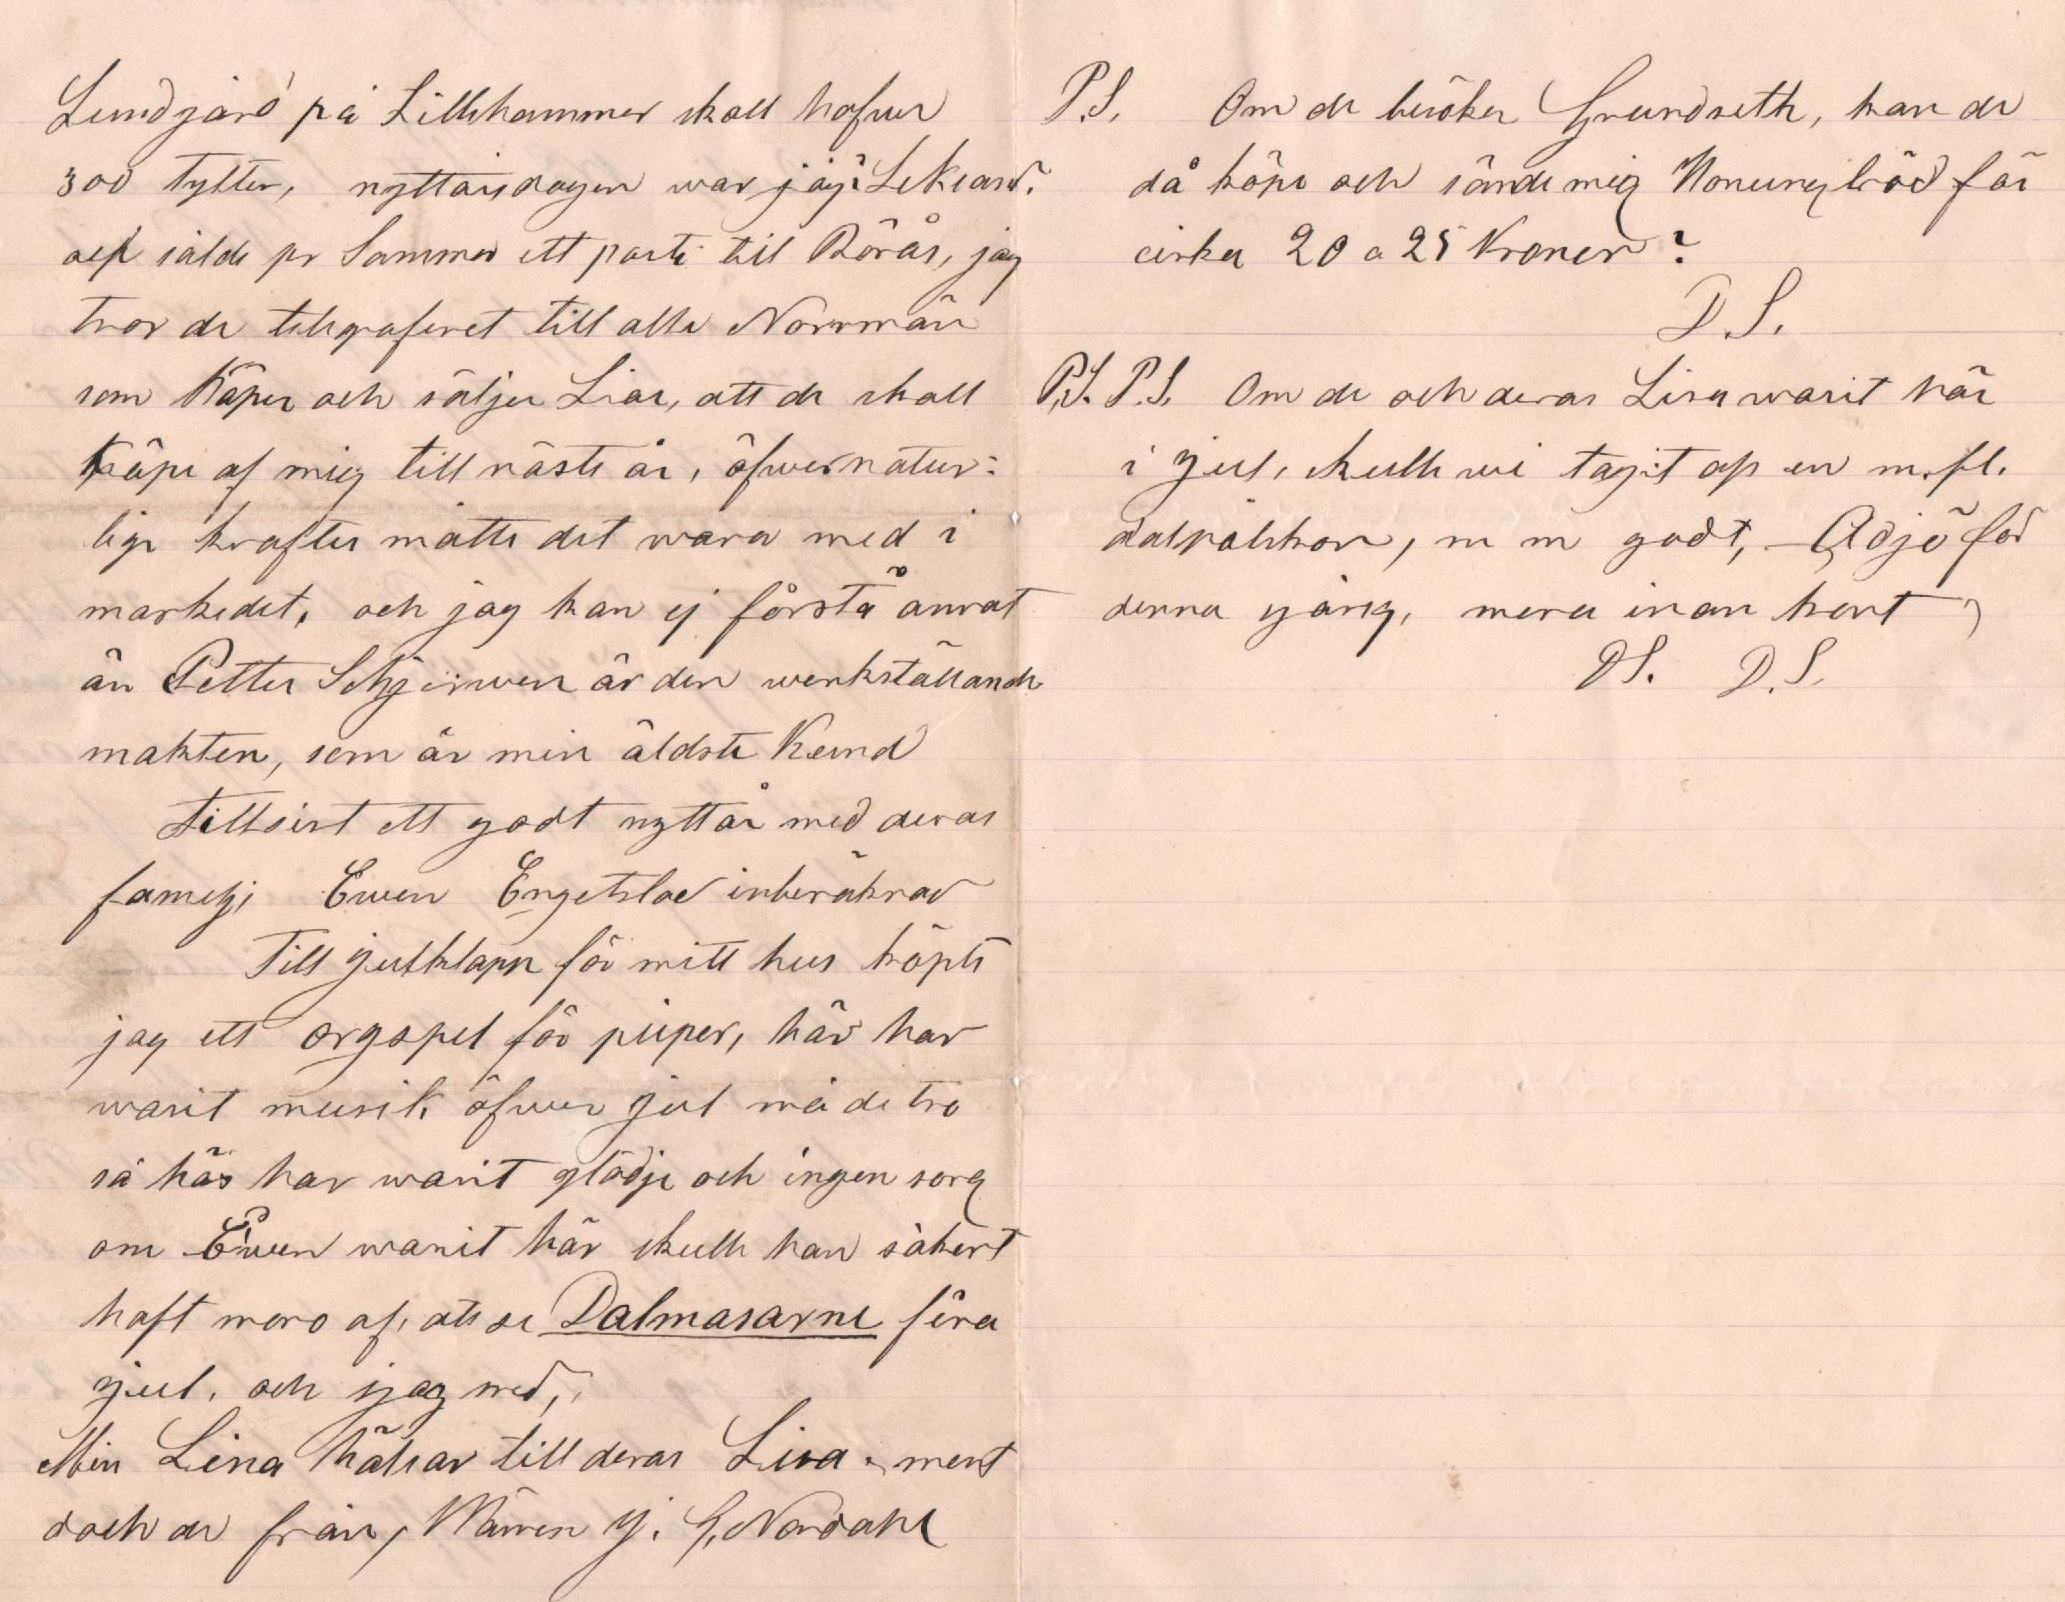 Lundgård på Lillehammer skall hafwa
300 tylter, nyttårsdagen war jag i Leksand.
och sålde pr Sommer ett parti til Rörås, jag
tror de telegraferet till alla Norrmän
som Köper och säljer Liar, att de skall
köpe af mig till näste år, öfwernatur:
lige krafter måtte det wara med i
markedet, och jag kan ej förstå anrat
än Petter Schjerwen är den werkställande
makten, som är min äldste Kund
Tillsist ett godt nyttår med deras
familj, Ewen Engetsloe inberäknad
Till julklapp för mitt hus köpte
jag ett orgspel för piiper, här har
warit musik öfwer jul må de tro
så här har warit glädje och ingen sorg
om Ewen warit här skulle han säkert
haft moro af, att se Dalmasarne fira
jul, och jag med,
Min Lina hälsar till deras Lisa, mest
doch de från, Wännen G. Nordahl
P.S. Om de besöker Grundseth, kan de
då köpe och sände mig Honungbröd för
cirka 20 a 25 Kroner?
D.S.
P.S. P.S. Om de och deras Lisa warit här
i jul, skulle wi tagit op en m. fl.
dalpölskor, m m godt, Adjö for
denna gång, mera inan kort
DS. D.S.